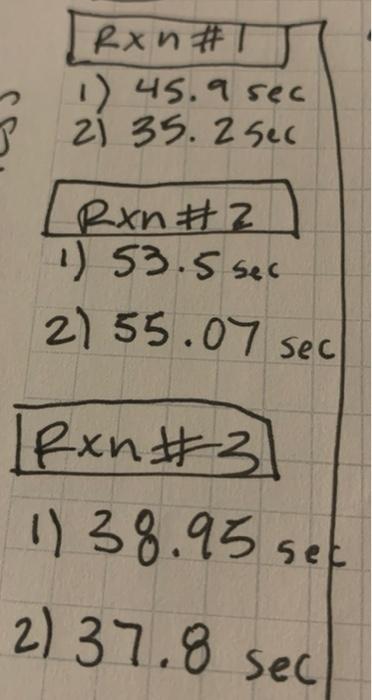 Rxn #1
1) 45.9 sec
2) 35.2 sec
Rxn #2
1) 53.5 sec
2) 55.07 sec
Rxn #3
1) 38.95 sec
2) 37.8 sec